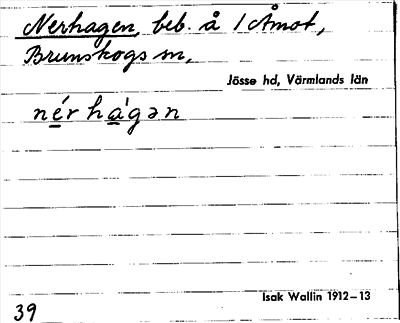 Nerhagen, beb. å 1 Åmot,
Brunskogs sn,
Jösse hd, Värmlands län
nérhágən
Isak Wallin 1912–13
39